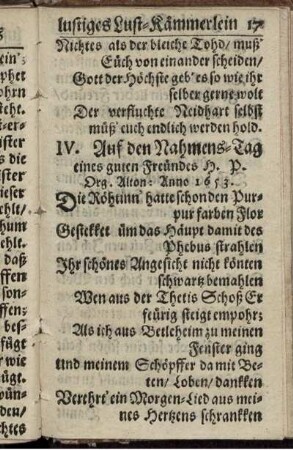 lustiges Lust-Kämmerlein 17
Nichtes als der bleiche Tohd/ muß
Eüch von einander scheiden/
Gott der Höchste geb' es so wie ihr
selber gerne wolt
Der verfluchte Neidhart selbst
müß' euch endlich werden hold.
IV. Auf den Nahmens-Tag
eines guten Freündes H. P.
Org. Alton: Anno 1653.
Die Röhtinn hatte schon den Pur-
pur farben Flor
Gestekket üm das Häupt damit des
Phebus strahlen
Ihr schönes Angesicht nicht könten
schwartz bemahlen
Wen aus der Thetis Schoß Er
feürig steigt empohr;
Als ich aus Betleheim zu meinen
Fenster ging
und meinem Schöpffer da mit Be-
ten/ Loben/ dankken
Verehrt' ein Morgen-Lied aus mei-
nes Hertzens schrankken